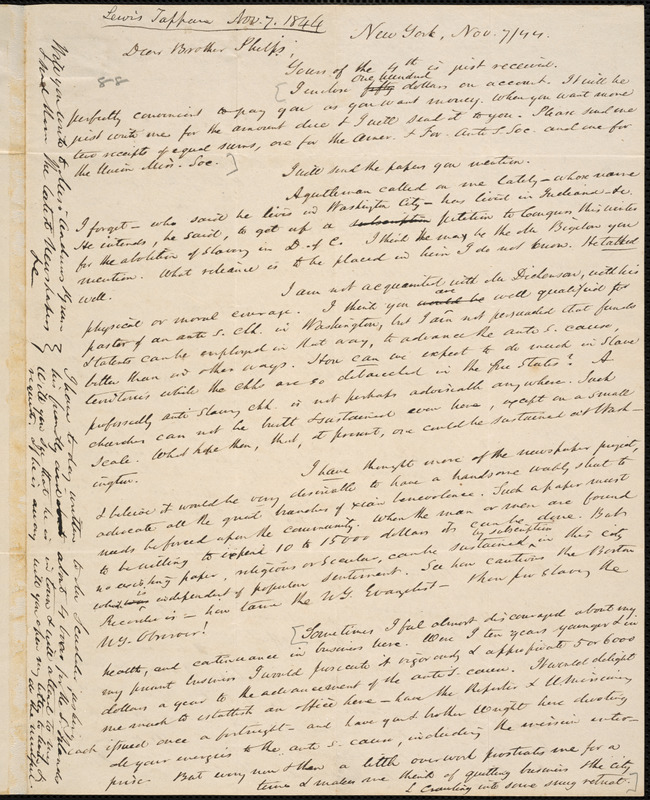 Lewis Tappan Nov. 7. 1844
New York, Nov. 7/44.
Dear Brother Phelps,
88
Yours of the 4th is just received.
I inclose fifty one hundred dollars on account. It will be
perfectly convenient to pay you as you want money. When you want more
just write me for the amount due & I will send it to you. Please send me
two receipts of equal sums, one for the Amer. & For. Anti S. Soc. and one for
the Union Miss. Soc.
I will send the papers you mention.
A gentleman called on me lately - whose name
I forget - who said he lives in Washington City - has lived in Indiana &c.
He intends, he said, to get up a subscription petition to Congress this winter
for the abolition of Slavery in D. of C. I think he may be the Mr Bigelow you
mention. What reliance is to be placed in him I do not know. He talked
well.
I am not acquainted with Mr Dickenson, with his
physical or moral courage. I think you would be are well qualified for
pastor of an anti S. chh. in Washington, but I am not persuaded that funds
& talents can be employed in that way, to advance the anti S. cause,
better than in other ways. How can we expect to do much in Slave
territories while the chhs are so debauched in the free States? A
professedly anti Slavery chh. is not perhaps advisable any where. Such
churches can not be built & sustained even here, except on a small
scale. What hope then, that, at present, one could be sustained at Wash-
ington.
I have thought more of the newspaper project,
I believe it would be very desirable to have a handsome weekly sheet to
advocate all the great branches of xian benevolence. Such a paper must
needs be forced upon the community. When the man or men are found
to be willing to expend 10 to 15000 dollars it can be done. But
no existing paper, religious or secular, can be sustained, by subscription in this city
which is independent of popular sentiment. See how cautious the Boston
Recorder is - how tame the N.Y. Evangelist - how pro slavery the
N.Y. Observer!
Sometimes I feel almost discouraged about my
health, and continuance in business here. Were I ten years younger & in
my present business I would prosecute it vigorously & appropriate 5 or 6000
dollars a year to the advancement of the anti S. cause. It would delight
me much to establish an office here - have the Reporter & U. Missionary
each issued once a fortnight - and have you & brother Wright here devoting
all your energies to the anti S. cause, including the mission enter-
prise. But every now & then a little over work prostrates me for a
time & makes me think of quitting business & the city
& crawling into some snug retreat.
I have to day written to Mr Scoble, asking
Will you say that he is in town & will attend to my
request. If he is away will you open my letter & attend to